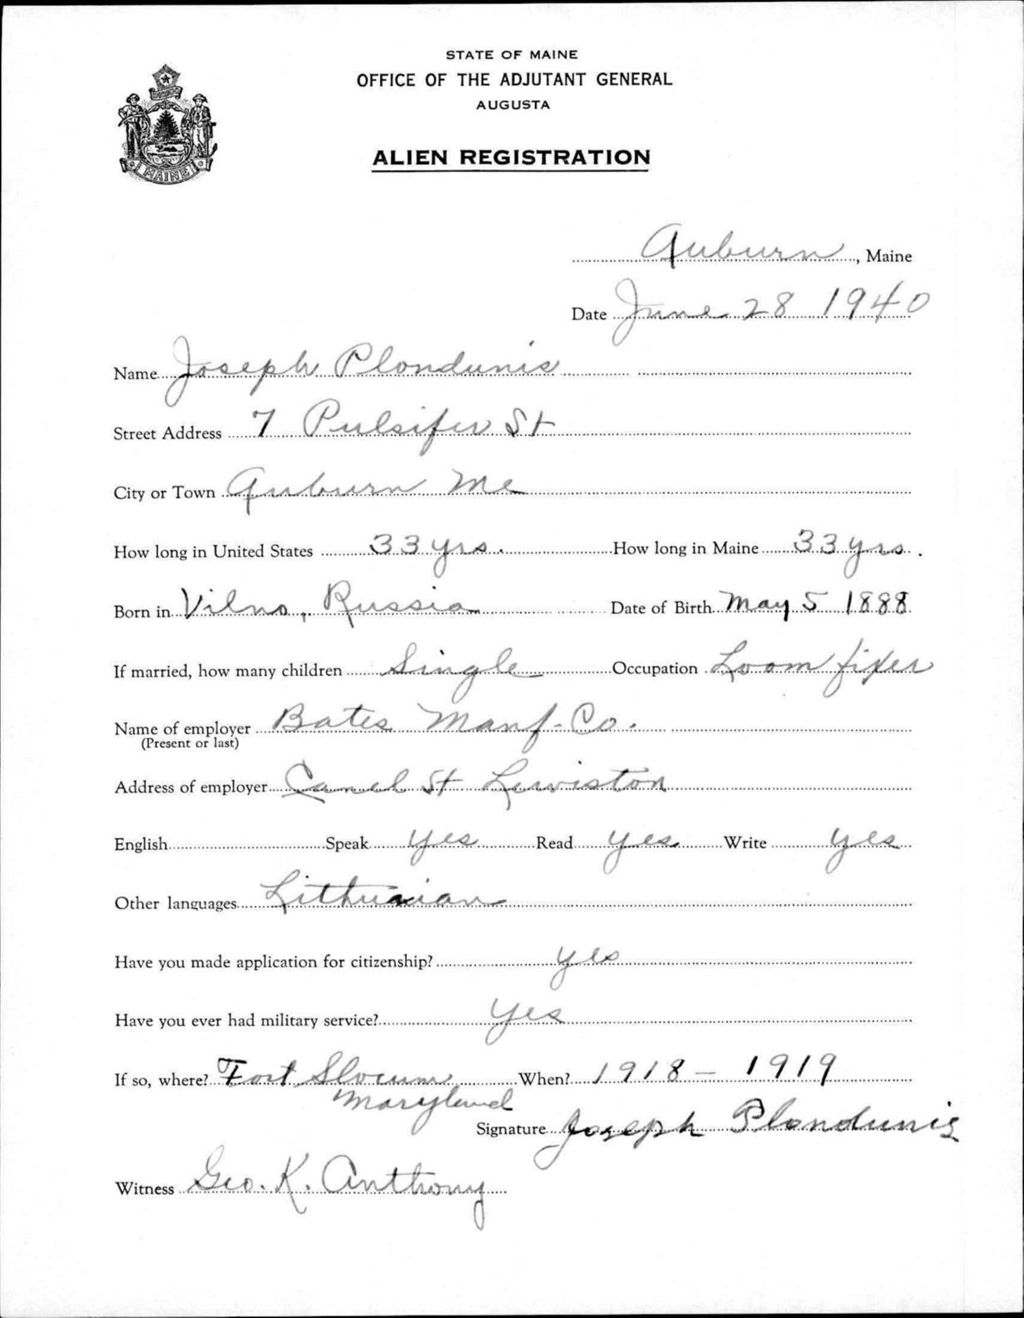 STATE OF MAINE
OFFICE OF THE ADJUTANT GENERAL
AUGUSTA
ALIEN REGISTRATION
MAINE
Auburn, Maine
Date June 28 1940
Name Joseph Plondunis
Street Address 7 Pulsifer St
City or Town Auburn Me
How long in United States 33 yrs. How long in Maine 33 yrs.
Born in Vilno, Russia Date of Birth May 5 1888
If married, how many children Single Occupation Loom fixer
Name of employer Bates Manf. Co.
(Present or last)
Address of employer Canel St Lewiston
English Speak yes Read yes Write yes
Other languages Lithuaian
Have you made application for citizenship? yes
Have you ever had military service? Yes
If so, where? Fort Slocum When? 1918 – 1919
Maryland
Signature Joseph Plondunis
Witness Geo. K. Anthony